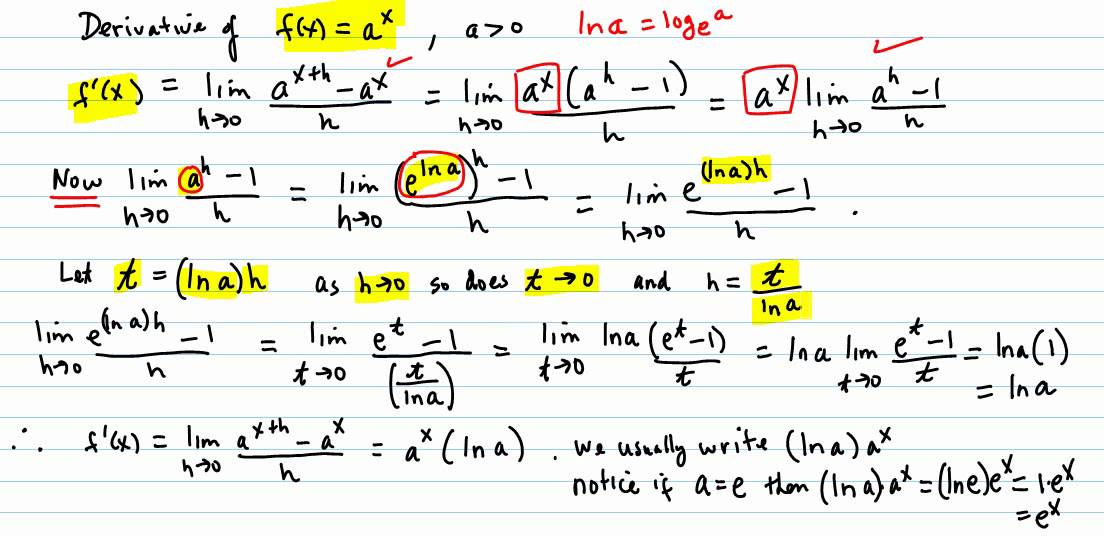 Derivative of f(x) = a^x , a > 0 ln a = log_e a
f'(x) = lim_{h→0} (a^{x+h} - a^x)/h = lim_{h→0} a^x (a^h - 1)/h = a^x lim_{h→0} (a^h - 1)/h
Now lim_{h→0} (a^h - 1)/h = lim_{h→0} ((e^{ln a})^h - 1)/h = lim_{h→0} (e^{(ln a)h} - 1)/h .
Let t = (ln a)h as h→0 so does t→0 and h = t/ln a
lim_{h→0} (e^{(ln a)h} - 1)/h = lim_{t→0} (e^t - 1)/(t/ln a) = lim_{t→0} ln a (e^t - 1)/t = ln a lim_{t→0} (e^t - 1)/t = ln a (1)
= ln a
∴ f'(x) = lim_{h→0} (a^{x+h} - a^x)/h = a^x (ln a) . we usually write (ln a) a^x
notice if a = e then (ln a) a^x = (ln e) e^x = 1·e^x
= e^x